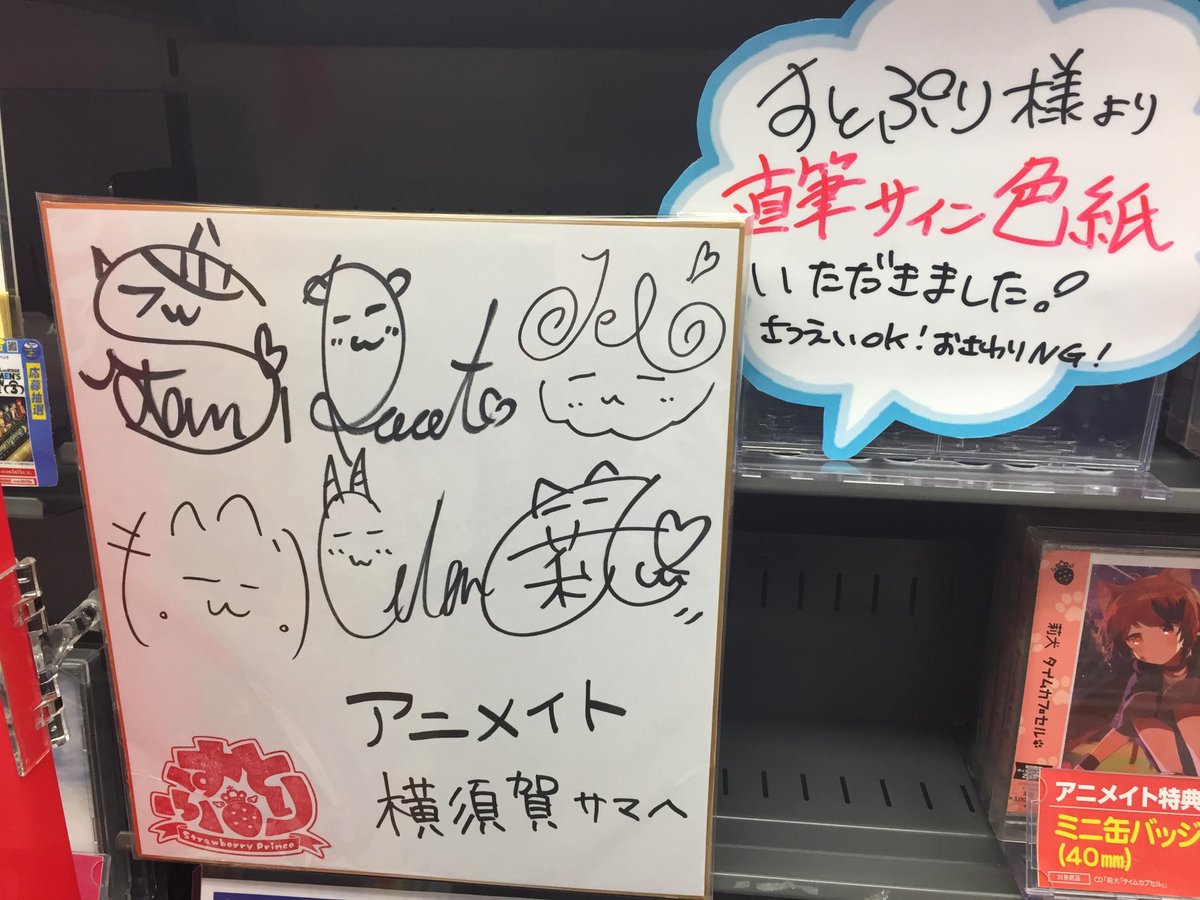 すとぷり様より
直筆サイン色紙
いただきました。
さつえいOK!おさわりNG!
Jel
莉
アニメイト
横須賀サマへ
すとぷり
Strawberry Prince
応募抽選
莉犬 タイムカプセル
アニメイト特典
ミニ缶バッジ
(40mm)
対象商品 CD「莉犬「タイムカプセル」